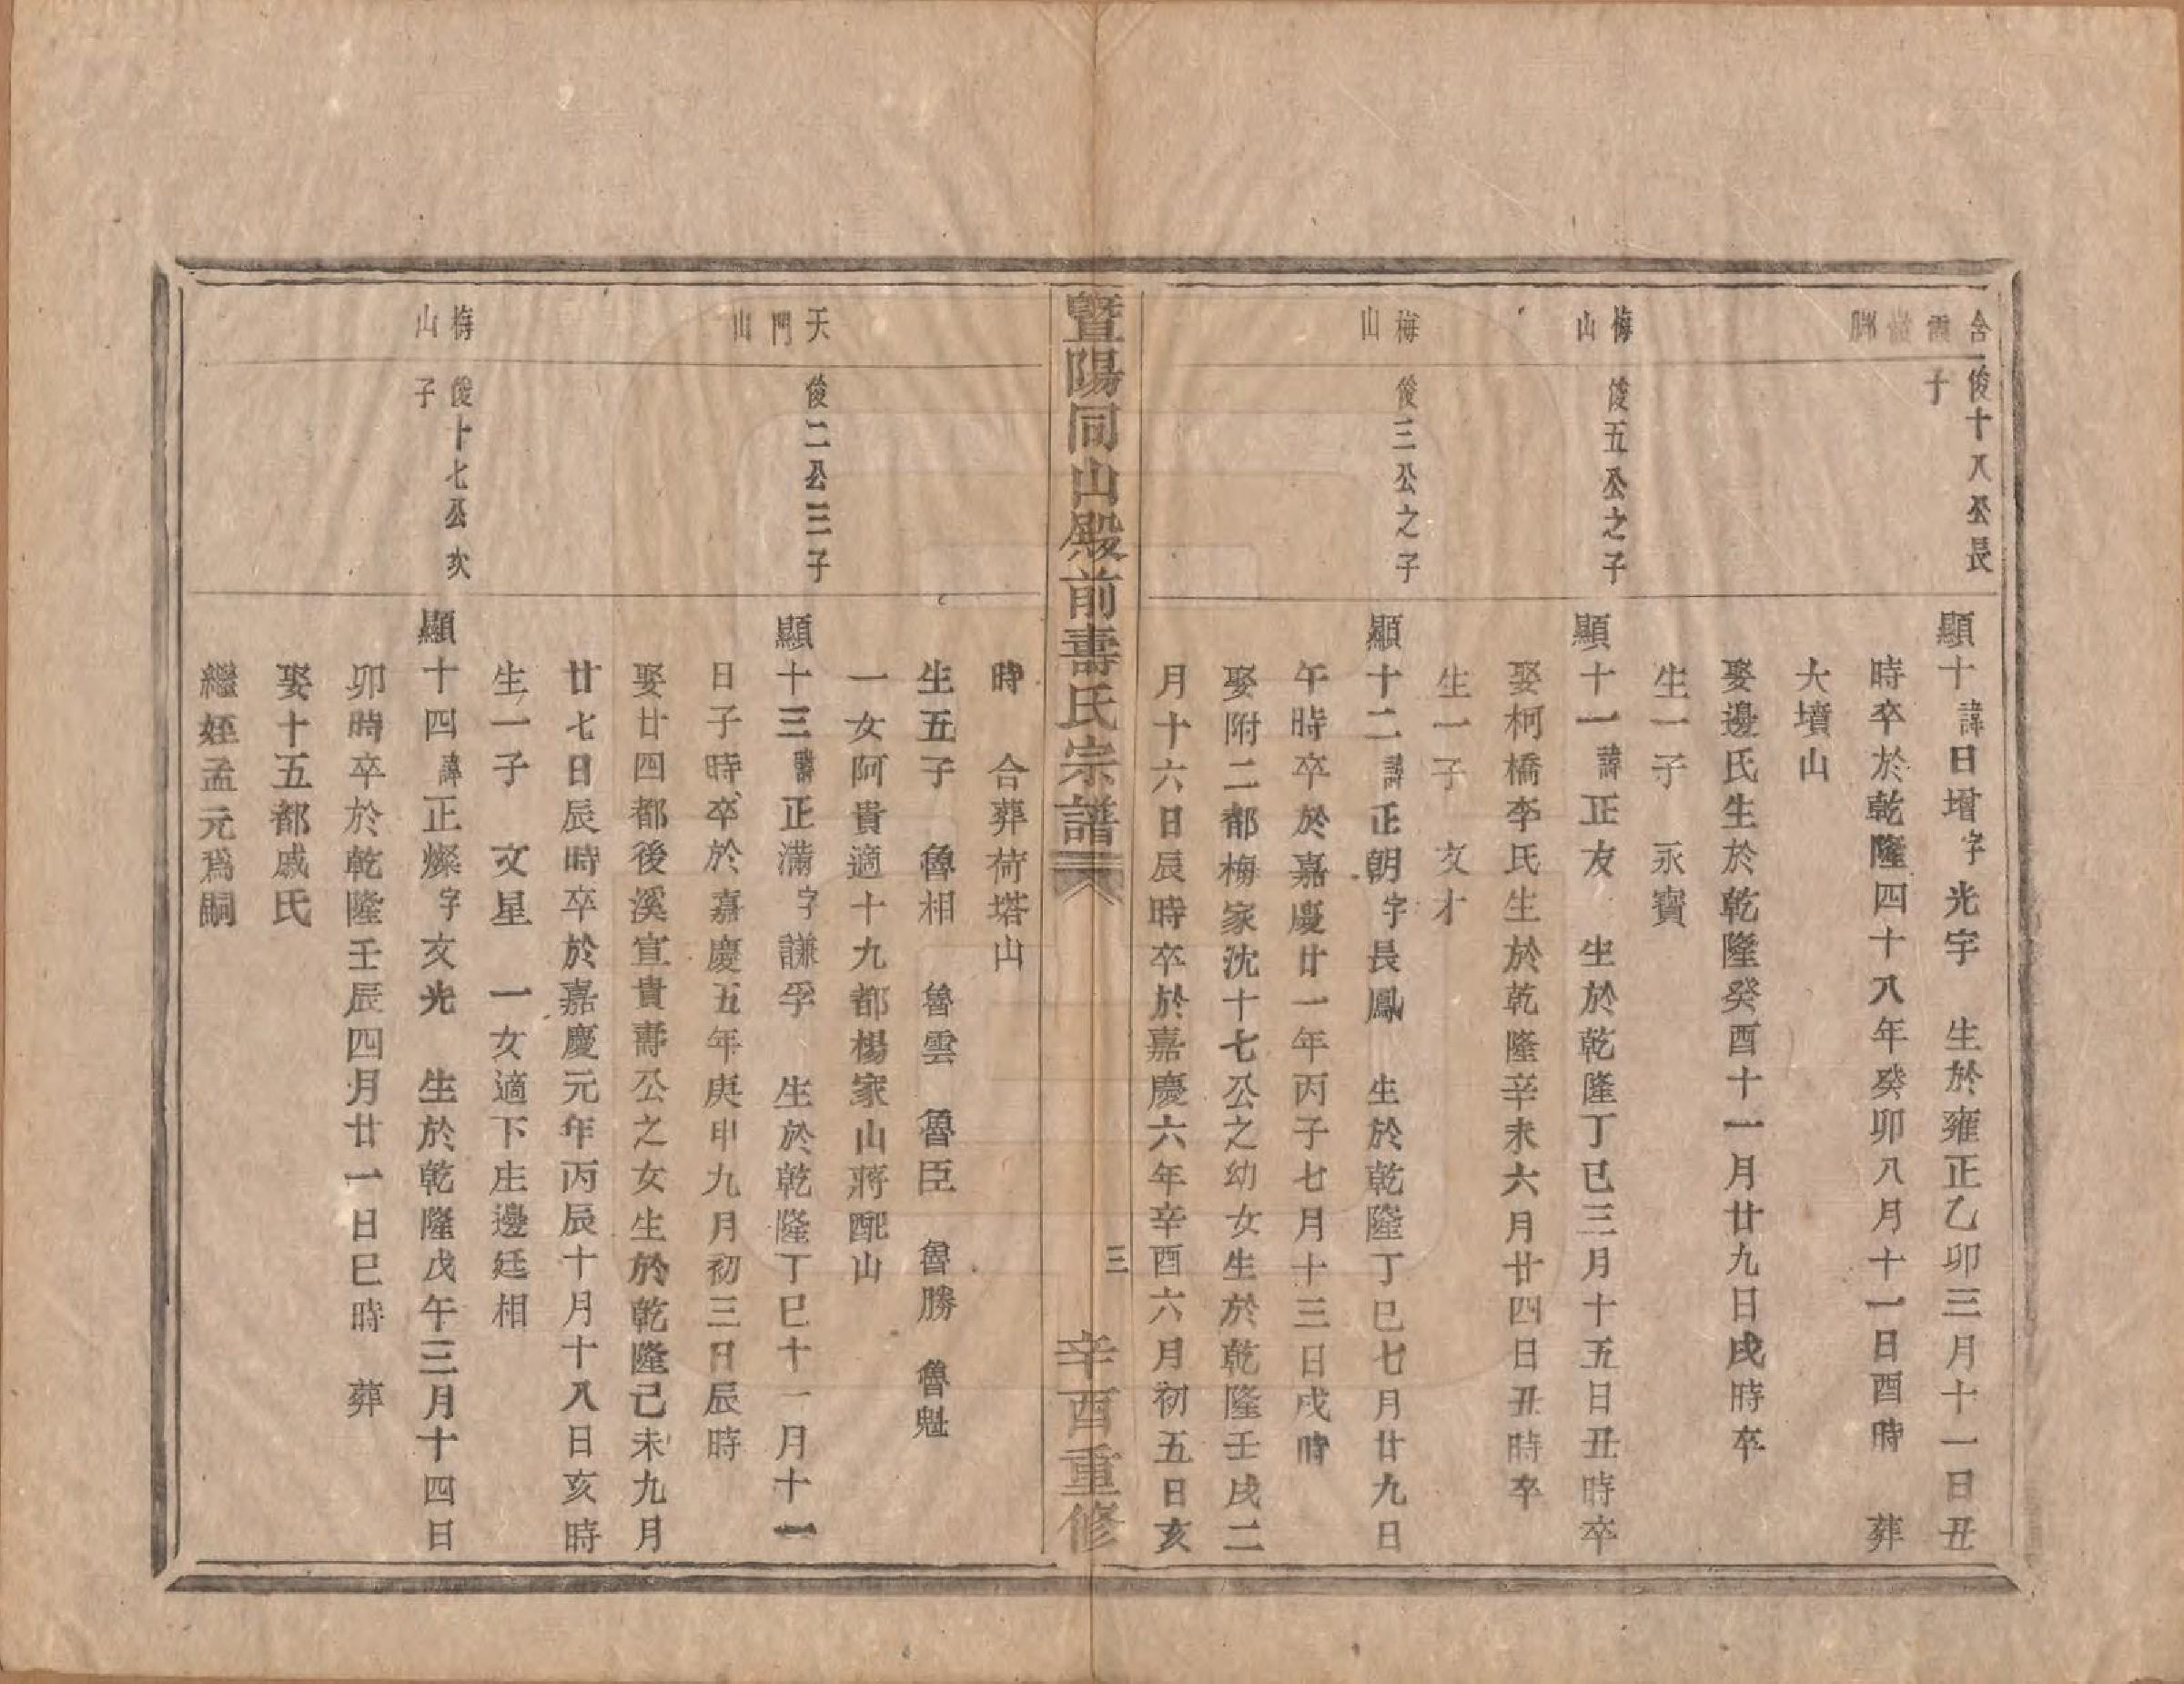 俊十八公長
子
顯十諱日增字光宇　生於雍正乙卯三月十一日丑
時卒於乾隆四十八年癸卯八月十一日酉時　葬
大墳山
娶邊氏生於乾隆癸酉十一月廿九日戌時卒
生一子　永寶
梅
山
俊五公之子
顯十一諱正友　生於乾隆丁巳三月十五日丑時卒
娶柯橋李氏生於乾隆辛未六月廿四日丑時卒
生一子　文才
梅
山
俊三公之子
顯十二諱正朝字長鳳　生於乾隆丁巳七月廿九日
午時卒於嘉慶廿一年丙子七月十三日戌時
娶附二都梅家沈十七公之幼女生於乾隆壬戌二
月十六日辰時卒於嘉慶六年辛酉六月初五日亥
暨陽同山殿前壽氏宗譜
三
辛酉重修
時　合葬荷塔山
生五子　魯相　魯雲　魯臣　魯勝　魯魁
一女阿貴適十九都楊家山蔣配山
天
門
山
俊二公三子
顯十三諱正滿字謙孚　生於乾隆丁巳十一月十一
日子時卒於嘉慶五年庚申九月初三日辰時
娶廿四都後溪宣貴壽公之女生於乾隆己未九月
廿七日辰時卒於嘉慶元年丙辰十月十八日亥時
生一子　文星　一女適下庄邊廷相
梅
山
俊十七公次
子
顯十四諱正燦字文光　生於乾隆戊午三月十四日
卯時卒於乾隆壬辰四月廿一日巳時　葬
娶十五都戚氏
繼姪孟元爲嗣